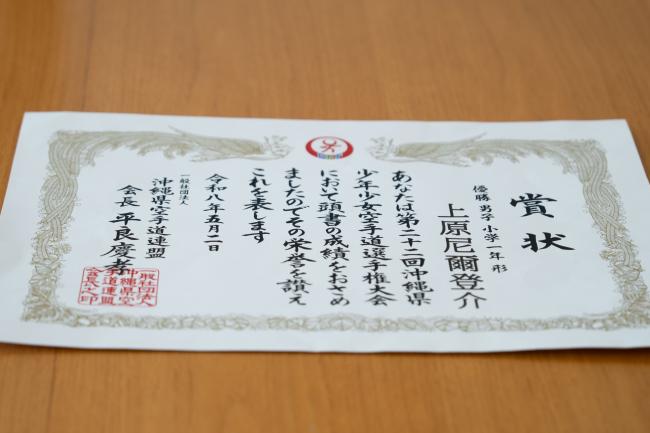 賞状
優勝 男子 小学一年 形
上原尼爾登介
あなたは第二十二回沖縄県
少年少女空手道選手権大会
において頭書の成績をおさめ
ましたのでその栄誉を讃え
これを表します
令和八年五月二日
一般社団法人
沖縄県空手道連盟
会長 平良慶孝
一般社団法人
沖縄県空手
道連盟
会長之印